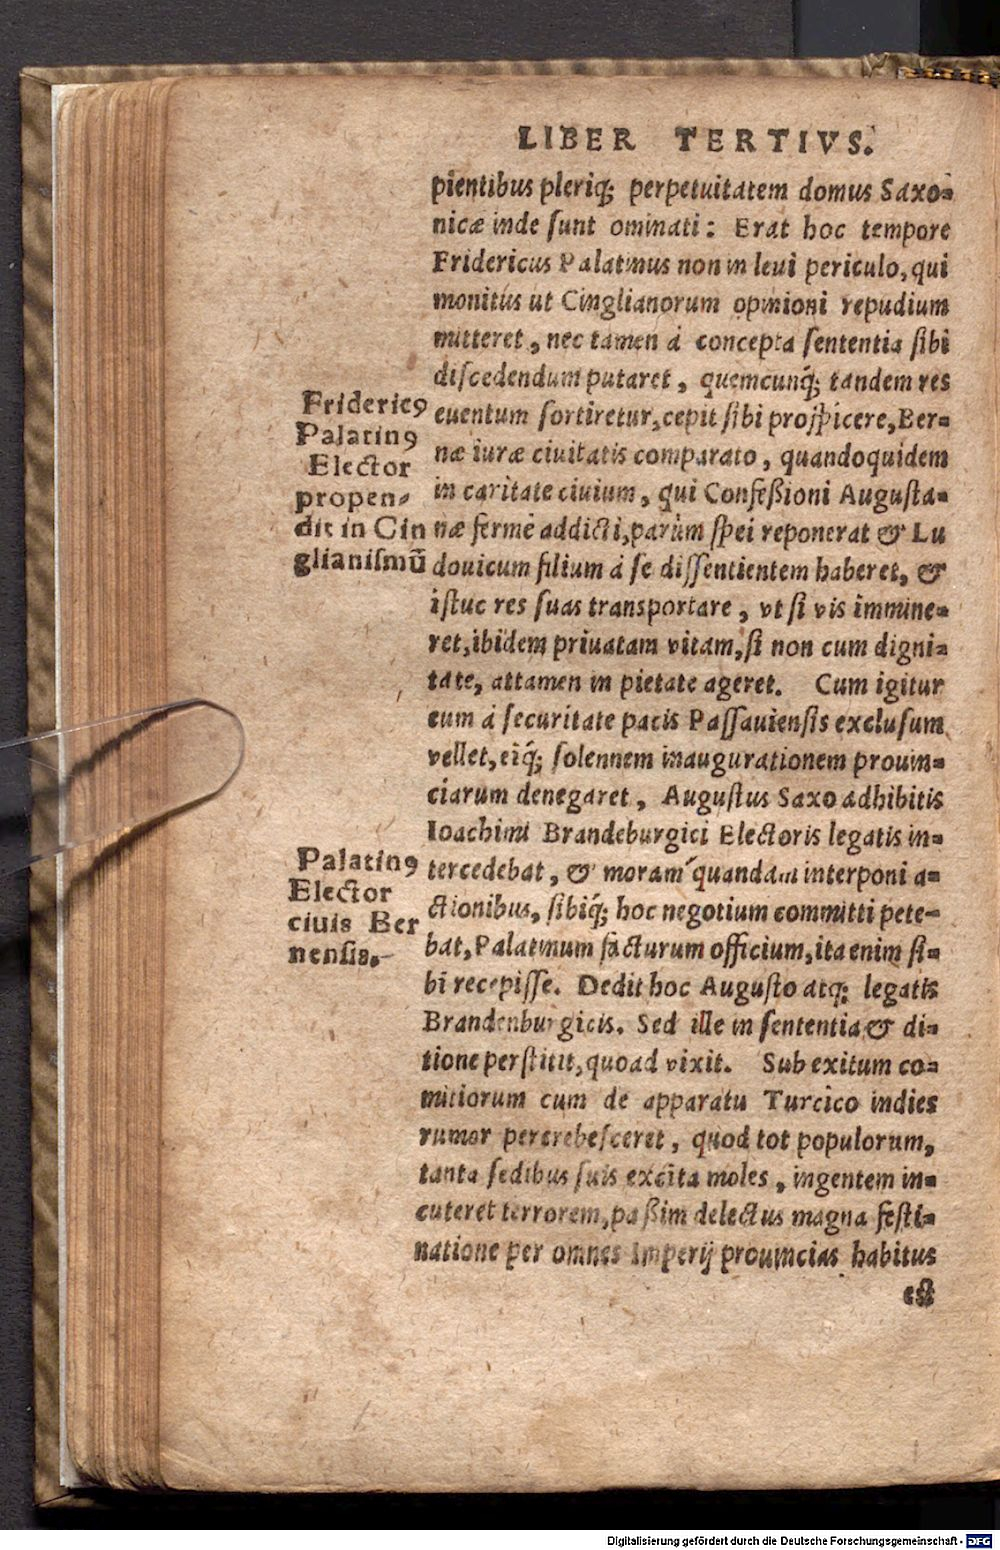 LIBER TERTIVS.
pientibus pleriq́; perpetuitatem domus Saxo-
nicæ inde sunt ominati: Erat hoc tempore
Fridericus Palatinus non in leui periculo, qui
monitus ut Cinglianorum opinioni repudium
mitteret, nec tamen à concepta sententia sibi
discedendum putaret, quemcunq́; tandem res
euentum sortiretur, cepit sibi prospicere, Ber-
næ iuræ ciuitatis comparato, quandoquidem
in caritate ciuium, qui Confeßioni Augusta-
næ fermè addicti, parùm spei reponerat & Lu
douicum filium à se dissentientem haberet, &
istuc res suas transportare, vt si vis immine-
ret, ibidem priuatam vitam, si non cum digni-
tate, attamen in pietate ageret. Cum igitur
eum à securitate pacis Passauiensis exclusum
vellet, eiq́; solennem inaugurationem prouin-
ciarum denegaret, Augustus Saxo adhibitis
Ioachimi Brandeburgici Electoris legatis in-
tercedebat, & moram quandam interponi a-
ctionibus, sibiq́; hoc negotium committi pete-
bat, Palatinum facturum officium, ita enim si-
bi recepisse. Dedit hoc Augusto atq; legatis
Brandenburgicis. Sed ille in sententia & di-
tione perstitit, quoad vixit. Sub exitum co-
mitiorum cum de apparatu Turcico indies
rumor percrebesceret, quod tot populorum,
tanta sedibus suis excita moles, ingentem in-
cuteret terrorem, paßim delectus magna festi-
natione per omnes Imperij prouincias habitus
est
Frideric9
Palatin9
Elector
propen-
dit in Cin
glianismũ
Palatin9
Elector
ciuis Ber
nensis.
Digitalisierung gefördert durch die Deutsche Forschungsgemeinschaft - DFG